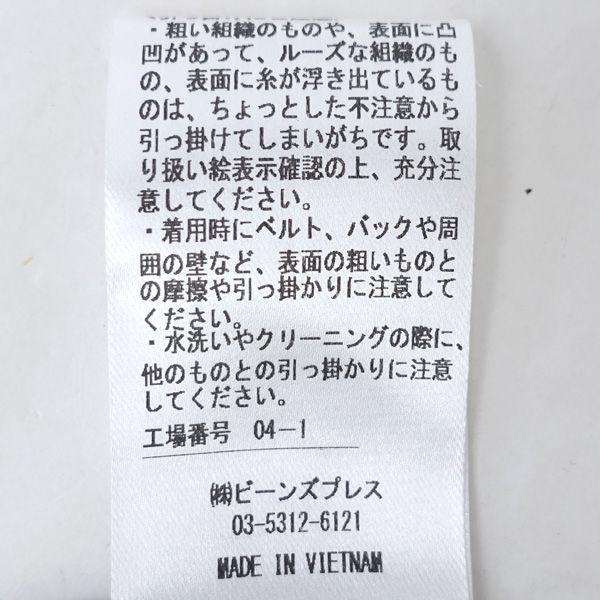 ・粗い組織のものや、表面に凸
凹があって、ルーズな組織のも
の、表面に糸が浮き出ているも
のは、ちょっとした不注意から
引っ掛けてしまいがちです。取
り扱い絵表示確認の上、充分注
意してください。
・着用時にベルト、バックや周
囲の壁など、表面の粗いものと
の摩擦や引っ掛かりに注意して
ください。
・水洗いやクリーニングの際に、
他のものとの引っ掛かりに注意
してください。
工場番号 04-1
㈱ビーンズプレス
03-5312-6121
MADE IN VIETNAM